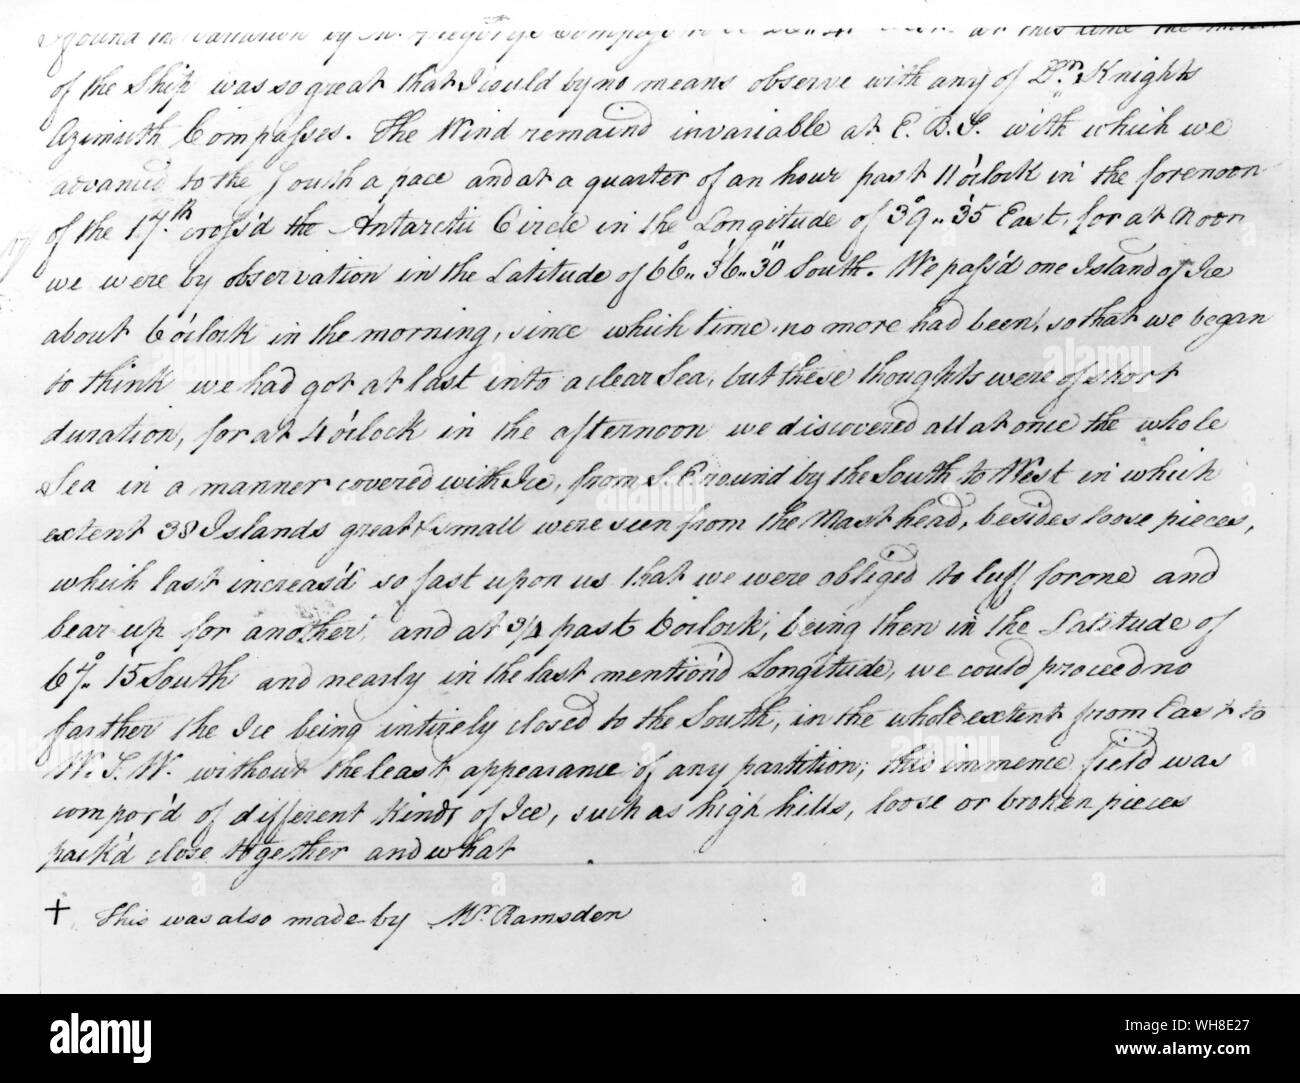 I found the variation by Mr. Gregorys Compass to be
at this time the motion
of the Ship was so great that I could by no means observe with any of Dr. Knights
Azimuth Compasses. The Wind remaind invariable at E. B. S. with which we
advanced to the South a pace and at a quarter of an hour past 11 o'clock in the forenoon
of the 17th. cross'd the Antarctic Circle in the Longitude of 39°..35' East, for at noon
we were by observation in the Latitude of 66°..36'..30" South. We pass'd one Island of Ice
about 6 o'clock in the morning, since which time no more had been, so that we began
to think we had got at last into a clear Sea, but these thoughts were of short
duration, for at 4 o'clock in the afternoon we discovered all at once the whole
Sea in a manner covered with Ice, from S. E round by the South to West in which
extent 38 Islands great & small were seen from the Mast head, besides loose pieces,
which last increas'd so fast upon us that we were obliged to luff for one and
bear up for another, and at 3/4 past 6 o'clock, being then in the Latitude of
67°..15 South and nearly in the last mention'd Longitude, we could proceed no
farther the Ice being intirely closed to the South, in the whole extent from East to
W. S. W. without the least appearance of any partition; this immence field was
compos'd of different kinds of Ice, such as high hills, loose or broken pieces
pack'd close together and what
† This was also made by Mr. Ramsden
alamy
Image ID: WH8E27
www.alamy.com